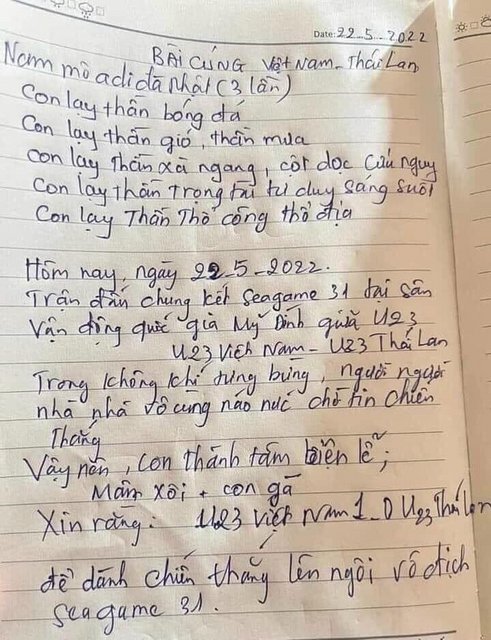 Date: 22_5_2022
BÀI CÚNG Việt Nam_Thái Lan
Nam mô adiđà phật (3 lần)
Con lạy thần bóng đá
Con lạy thần gió, thần mưa
con lạy thần xà ngang, cột dọc cứu nguy
Con lạy thần trọng tài tư duy sáng suốt
Con lạy Thần Thổ công thổ địa
Hôm nay, ngày 22_5_2022.
Trận đấu chung kết seagame 31 tại sân
Vận động quốc gia Mỹ Đình giữa U23
U23 Việt Nam_ U23 Thái Lan
Trong không khí tưng bừng, người người
nhà nhà vô cùng náo nức chờ tin chiến
Thắng
Vậy nên, con thành tâm biện lễ;
Mâm xôi + con gà
Xin rằng: U23 Việt Nam 1_0 U23 Thái Lan
để dành chiến thắng lên ngôi vô địch
seagame 31.